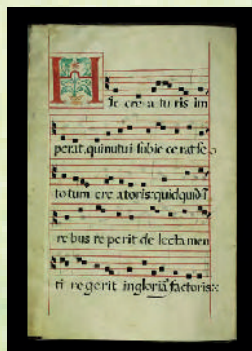 Hic cre a tu ris im
perat, qui nutui subie ce rat se
to tum cre atoris: quidquid i
re bus re perit de lecta men
ti re gerit in gloriã factoris: